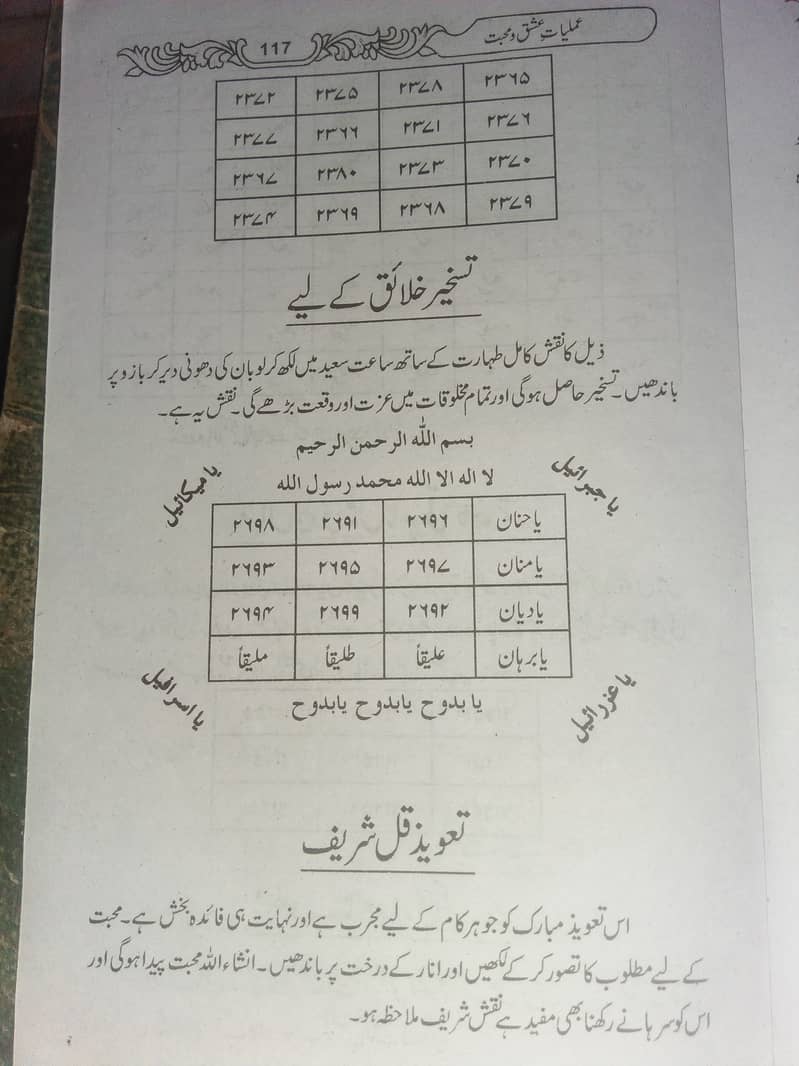 عملیاتِ عشق و محبت
117
۲۳۶۵ ۲۳۷۸ ۲۳۷۵ ۲۳۷۲
۲۳۷۶ ۲۳۷۱ ۲۳۶۶ ۲۳۷۷
۲۳۷۰ ۲۳۷۳ ۲۳۸۰ ۲۳۶۷
۲۳۷۹ ۲۳۶۸ ۲۳۶۹ ۲۳۷۴
تسخیر خلائق کے لیے
ذیل کا نقش کامل طہارت کے ساتھ ساعت سعید میں لکھ کر لوبان کی دھونی دیر کر بازو پر
باندھیں۔ تسخیر حاصل ہوگی اور تمام مخلوقات میں عزت اور وقعت بڑھے گی۔ نقش یہ ہے۔
بسم اللہ الرحمن الرحیم
لا الہ الا اللہ محمد رسول اللہ
یا جبرائیل
یا میکائیل
یا حنان ۲۶۹۶ ۲۶۹۱ ۲۶۹۸
یا منان ۲۶۹۷ ۲۶۹۵ ۲۶۹۳
یا دیان ۲۶۹۲ ۲۶۹۹ ۲۶۹۴
یا برہان علیقاً طلیقاً ملیقاً
یا عزرائیل
یا اسرافیل
یا بدوح یابدوح یابدوح
تعویذ قل شریف
اس تعویذ مبارک کو جو ہر کام کے لیے مجرب ہے اور نہایت ہی فائدہ بخش ہے۔ محبت
کے لیے مطلوب کا تصور کر کے لکھیں اور انار کے درخت پر باندھیں۔ انشاء اللہ محبت پیدا ہوگی اور
اس کو سرہانے رکھنا بھی مفید ہے نقش شریف ملاحظہ ہو۔